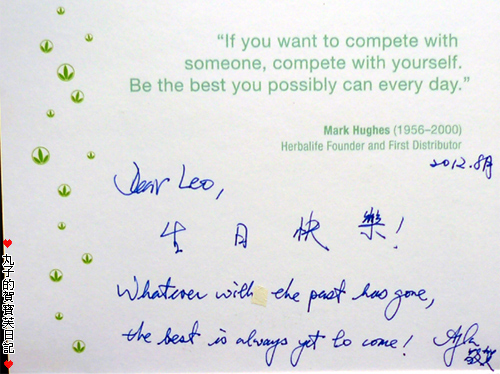 “If you want to compete with
someone, compete with yourself.
Be the best you possibly can every day.”
Mark Hughes (1956–2000)
Herbalife Founder and First Distributor
2012.8月
Dear Leo,
生日快樂!
Whatever with the past has gone,
the best is always yet to come!
丸子的賀寶芙日記